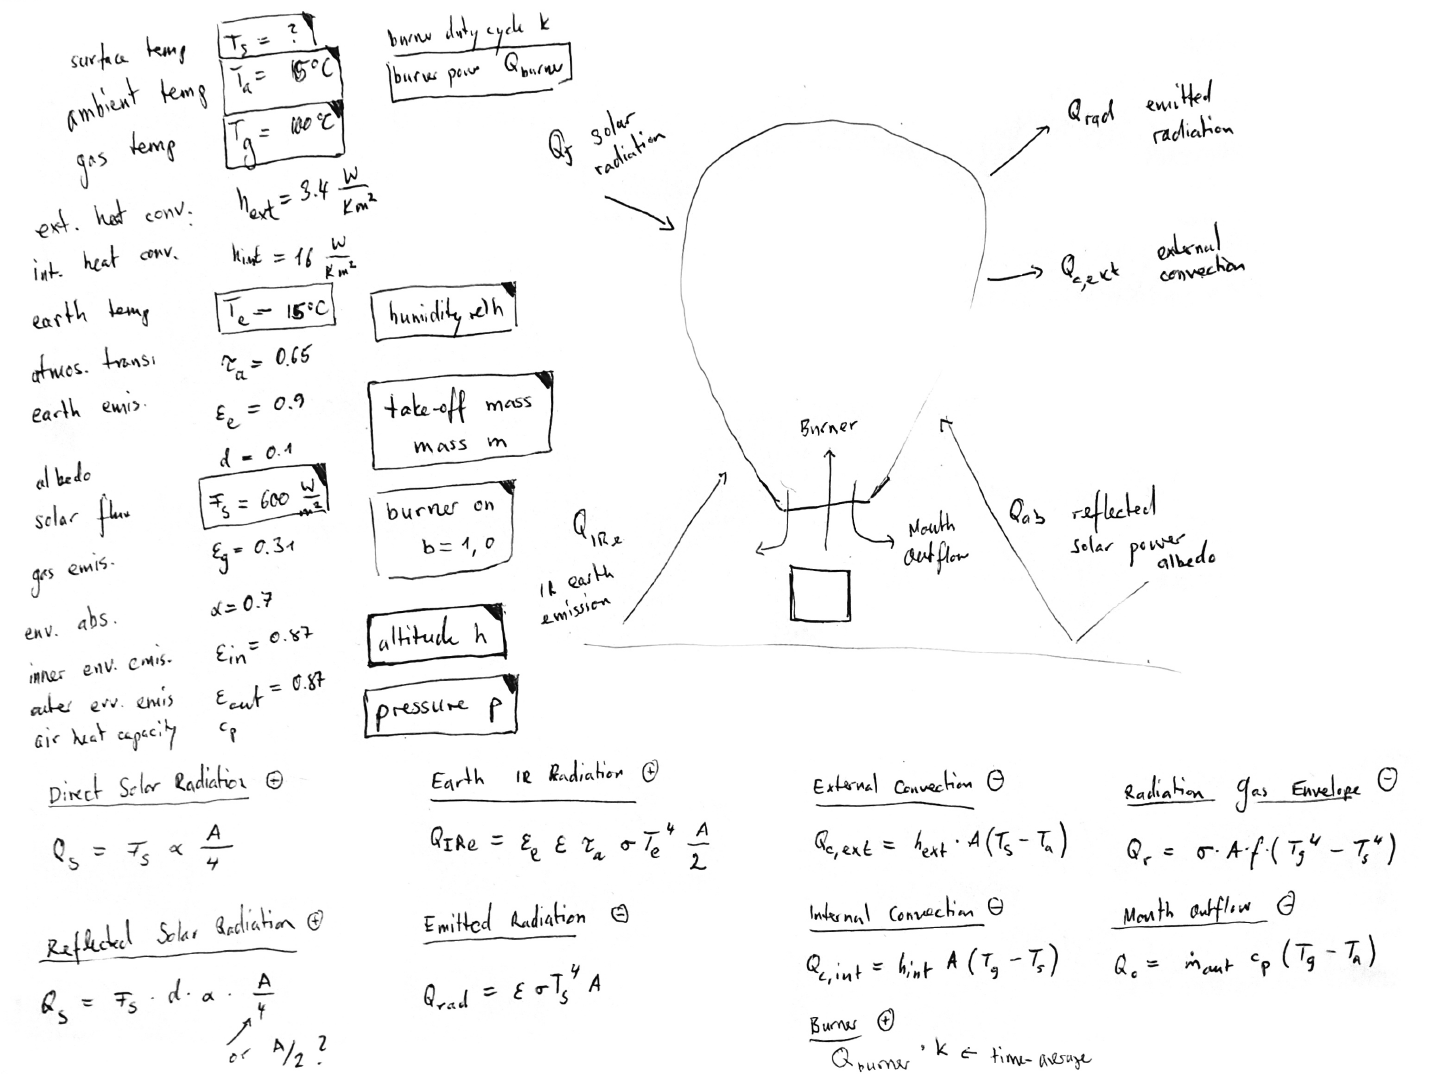 surface temp
T_s = ?
ambient temp
T_a = 15°C
gas temp
T_g = 100°C
ext. heat conv.
h_ext = 3.4 W/Km²
int. heat conv.
h_int = 16 W/Km²
earth temp
T_e = 15°C
atmos. transi
τ_a = 0.65
earth emis.
ε_e = 0.9
albedo
d = 0.1
solar flux
F_s = 600 W/m²
gas emis.
ε_g = 0.31
env. abs.
α = 0.7
inner env. emis.
ε_in = 0.87
outer env. emis
ε_out = 0.87
air heat capacity
c_p
burner duty cycle k
burner power Q_burner
humidity
take-off mass
mass m
burner on
b = 1, 0
altitude h
pressure p
solar
radiation
Q_rad emitted
radiation
Q_c,ext external
convection
Burner
Mouth
outflow
Q_IRe
IR earth
emission
Q_ab reflected
solar power
albedo
Direct Solar Radiation ⊖
Q_s = F_s α A/4
Reflected Solar Radiation ⊕
Q_s = F_s · d · α · A/4
or A/2 ?
Earth IR Radiation ⊕
Q_IRe = ε_e ε τ_a σ T_e⁴ A/2
Emitted Radiation ⊖
Q_rad = ε σ T_s⁴ A
External Convection ⊖
Q_c,ext = h_ext · A (T_s − T_a)
Internal Convection ⊖
Q_c,int = h_int A (T_g − T_s)
Burner ⊕
Q_burner · k ← time-average
Radiation gas Envelope ⊖
Q_r = σ · A · f · (T_g⁴ − T_s⁴)
Mouth Outflow ⊖
Q_o = ṁ_out c_p (T_g − T_a)